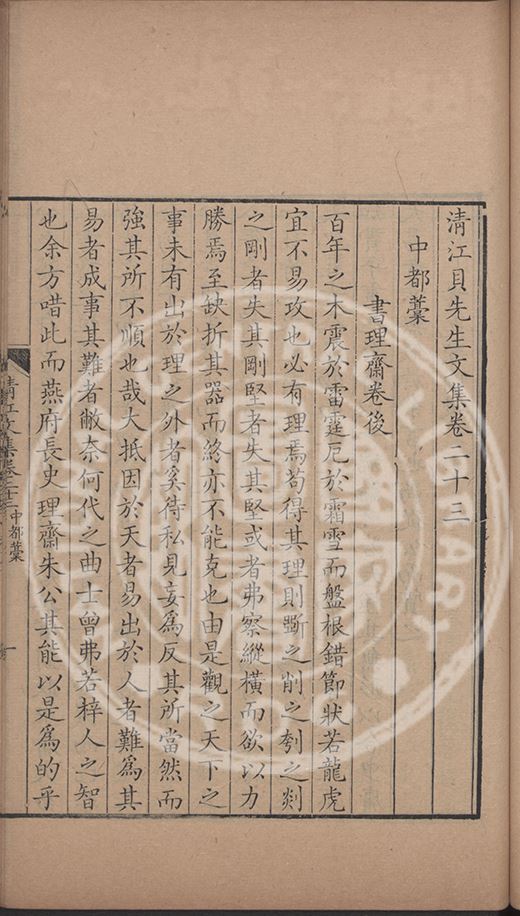 清江貝先生文集卷二十三
中都藁
書理齋卷後
百年之木震於雷霆厄於霜雪而盤根錯節狀若龍虎
宜不易攻也必有理焉苟得其理則斵之削之刳之剡
之剛者失其剛堅者失其堅或者弗察縱橫而欲以力
勝焉至缺折其器而終亦不能克也由是觀之天下之
事未有出於理之外者奚待私見妄爲反其所當然而
強其所不順也哉大抵因於天者易出於人者難爲其
易者成事其難者敝奈何代之曲士曾弗若梓人之智
也余方唶此而燕府長史理齋朱公其能以是爲的乎
清江文集卷二十三 中都藁 一